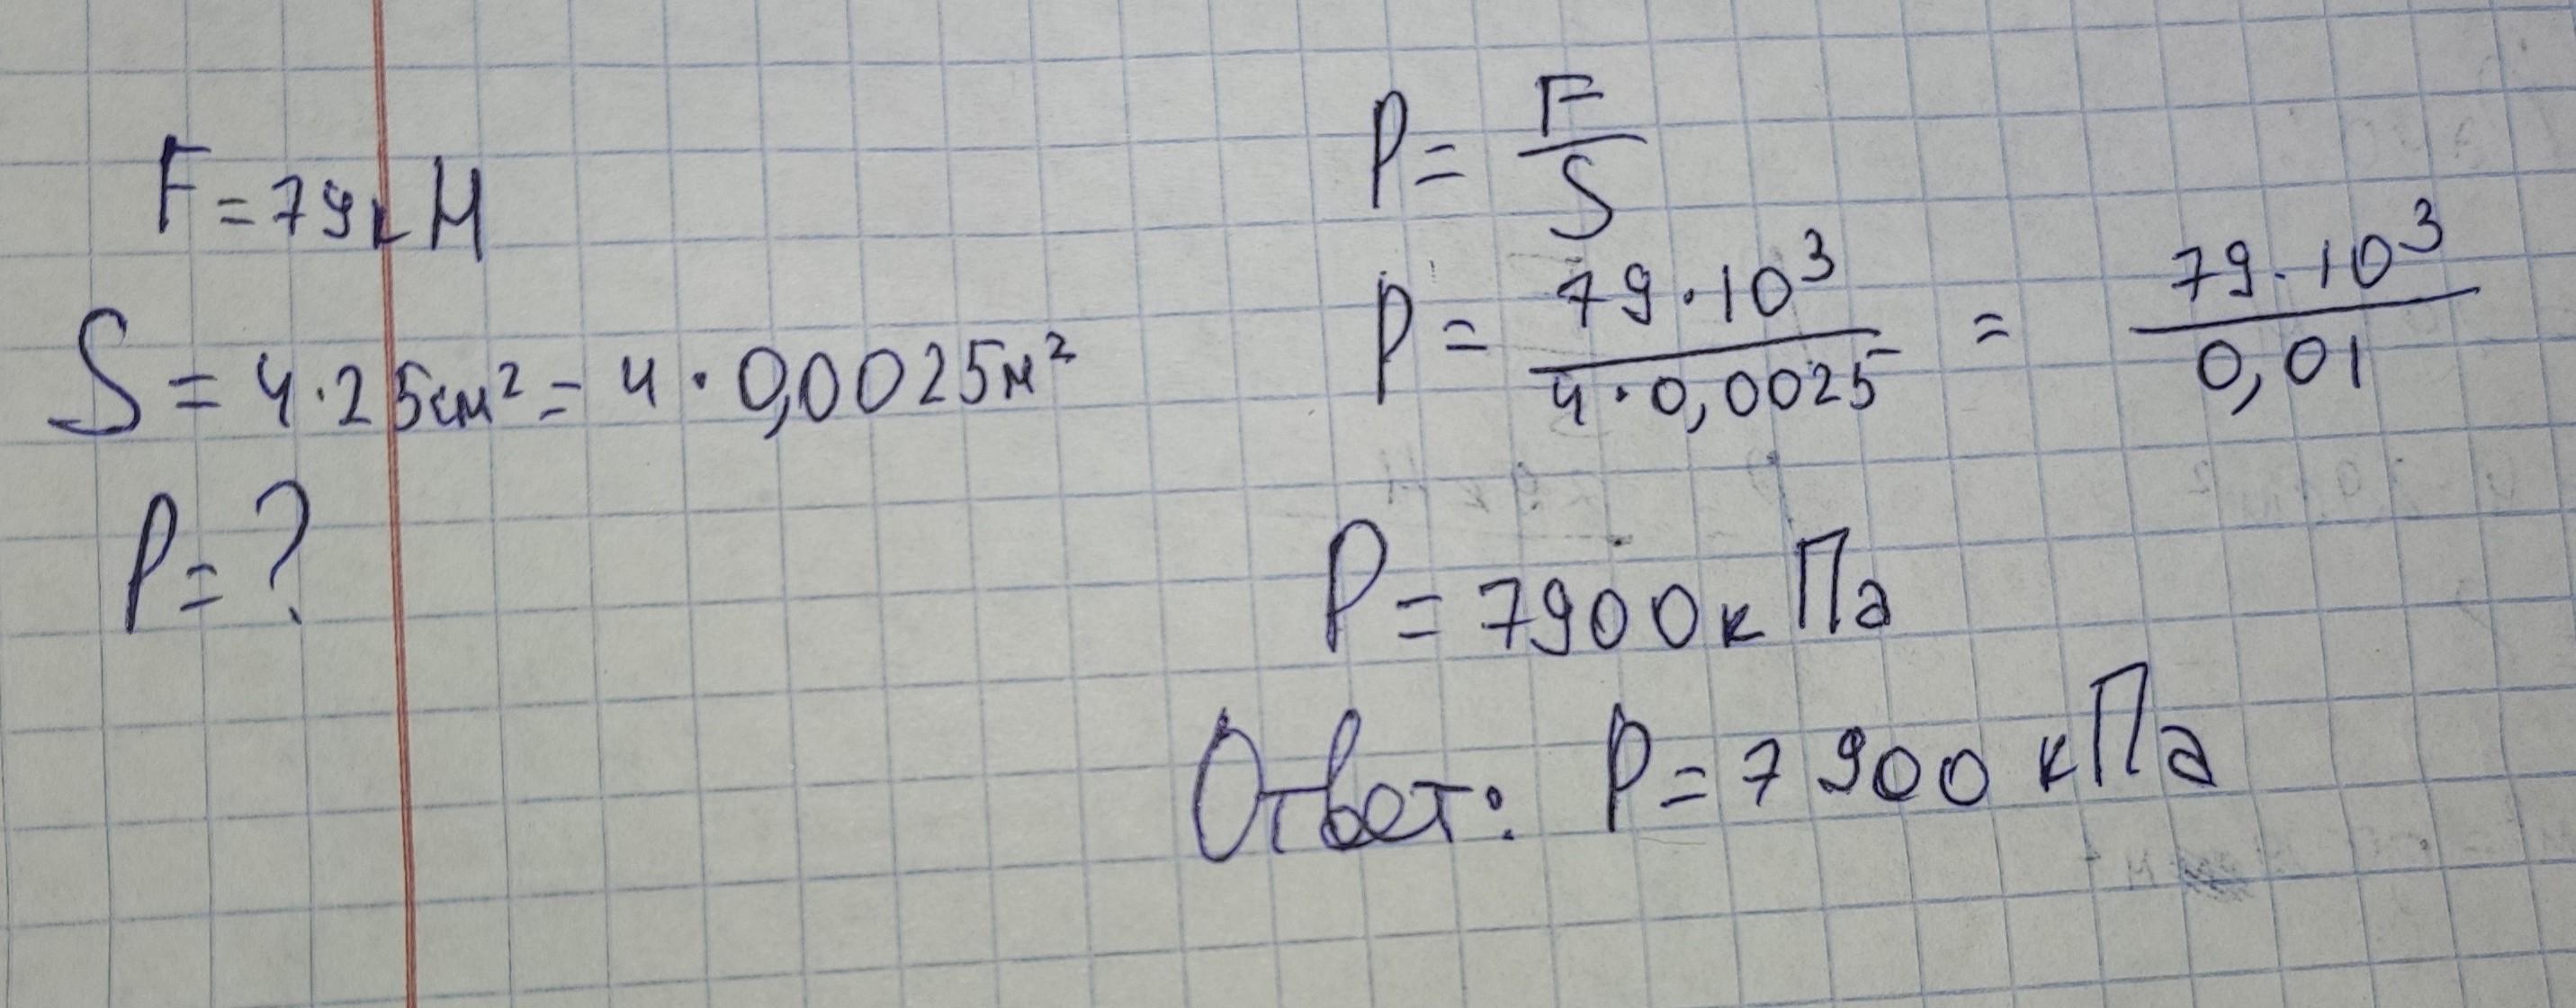 F = 79кН
S = 4·25см² = 4·0,0025м²
P = ?
P = F/S
P = 79·10³/4·0,0025 = 79·10³/0,01
P = 7900кПа
Ответ: P = 7900 кПа